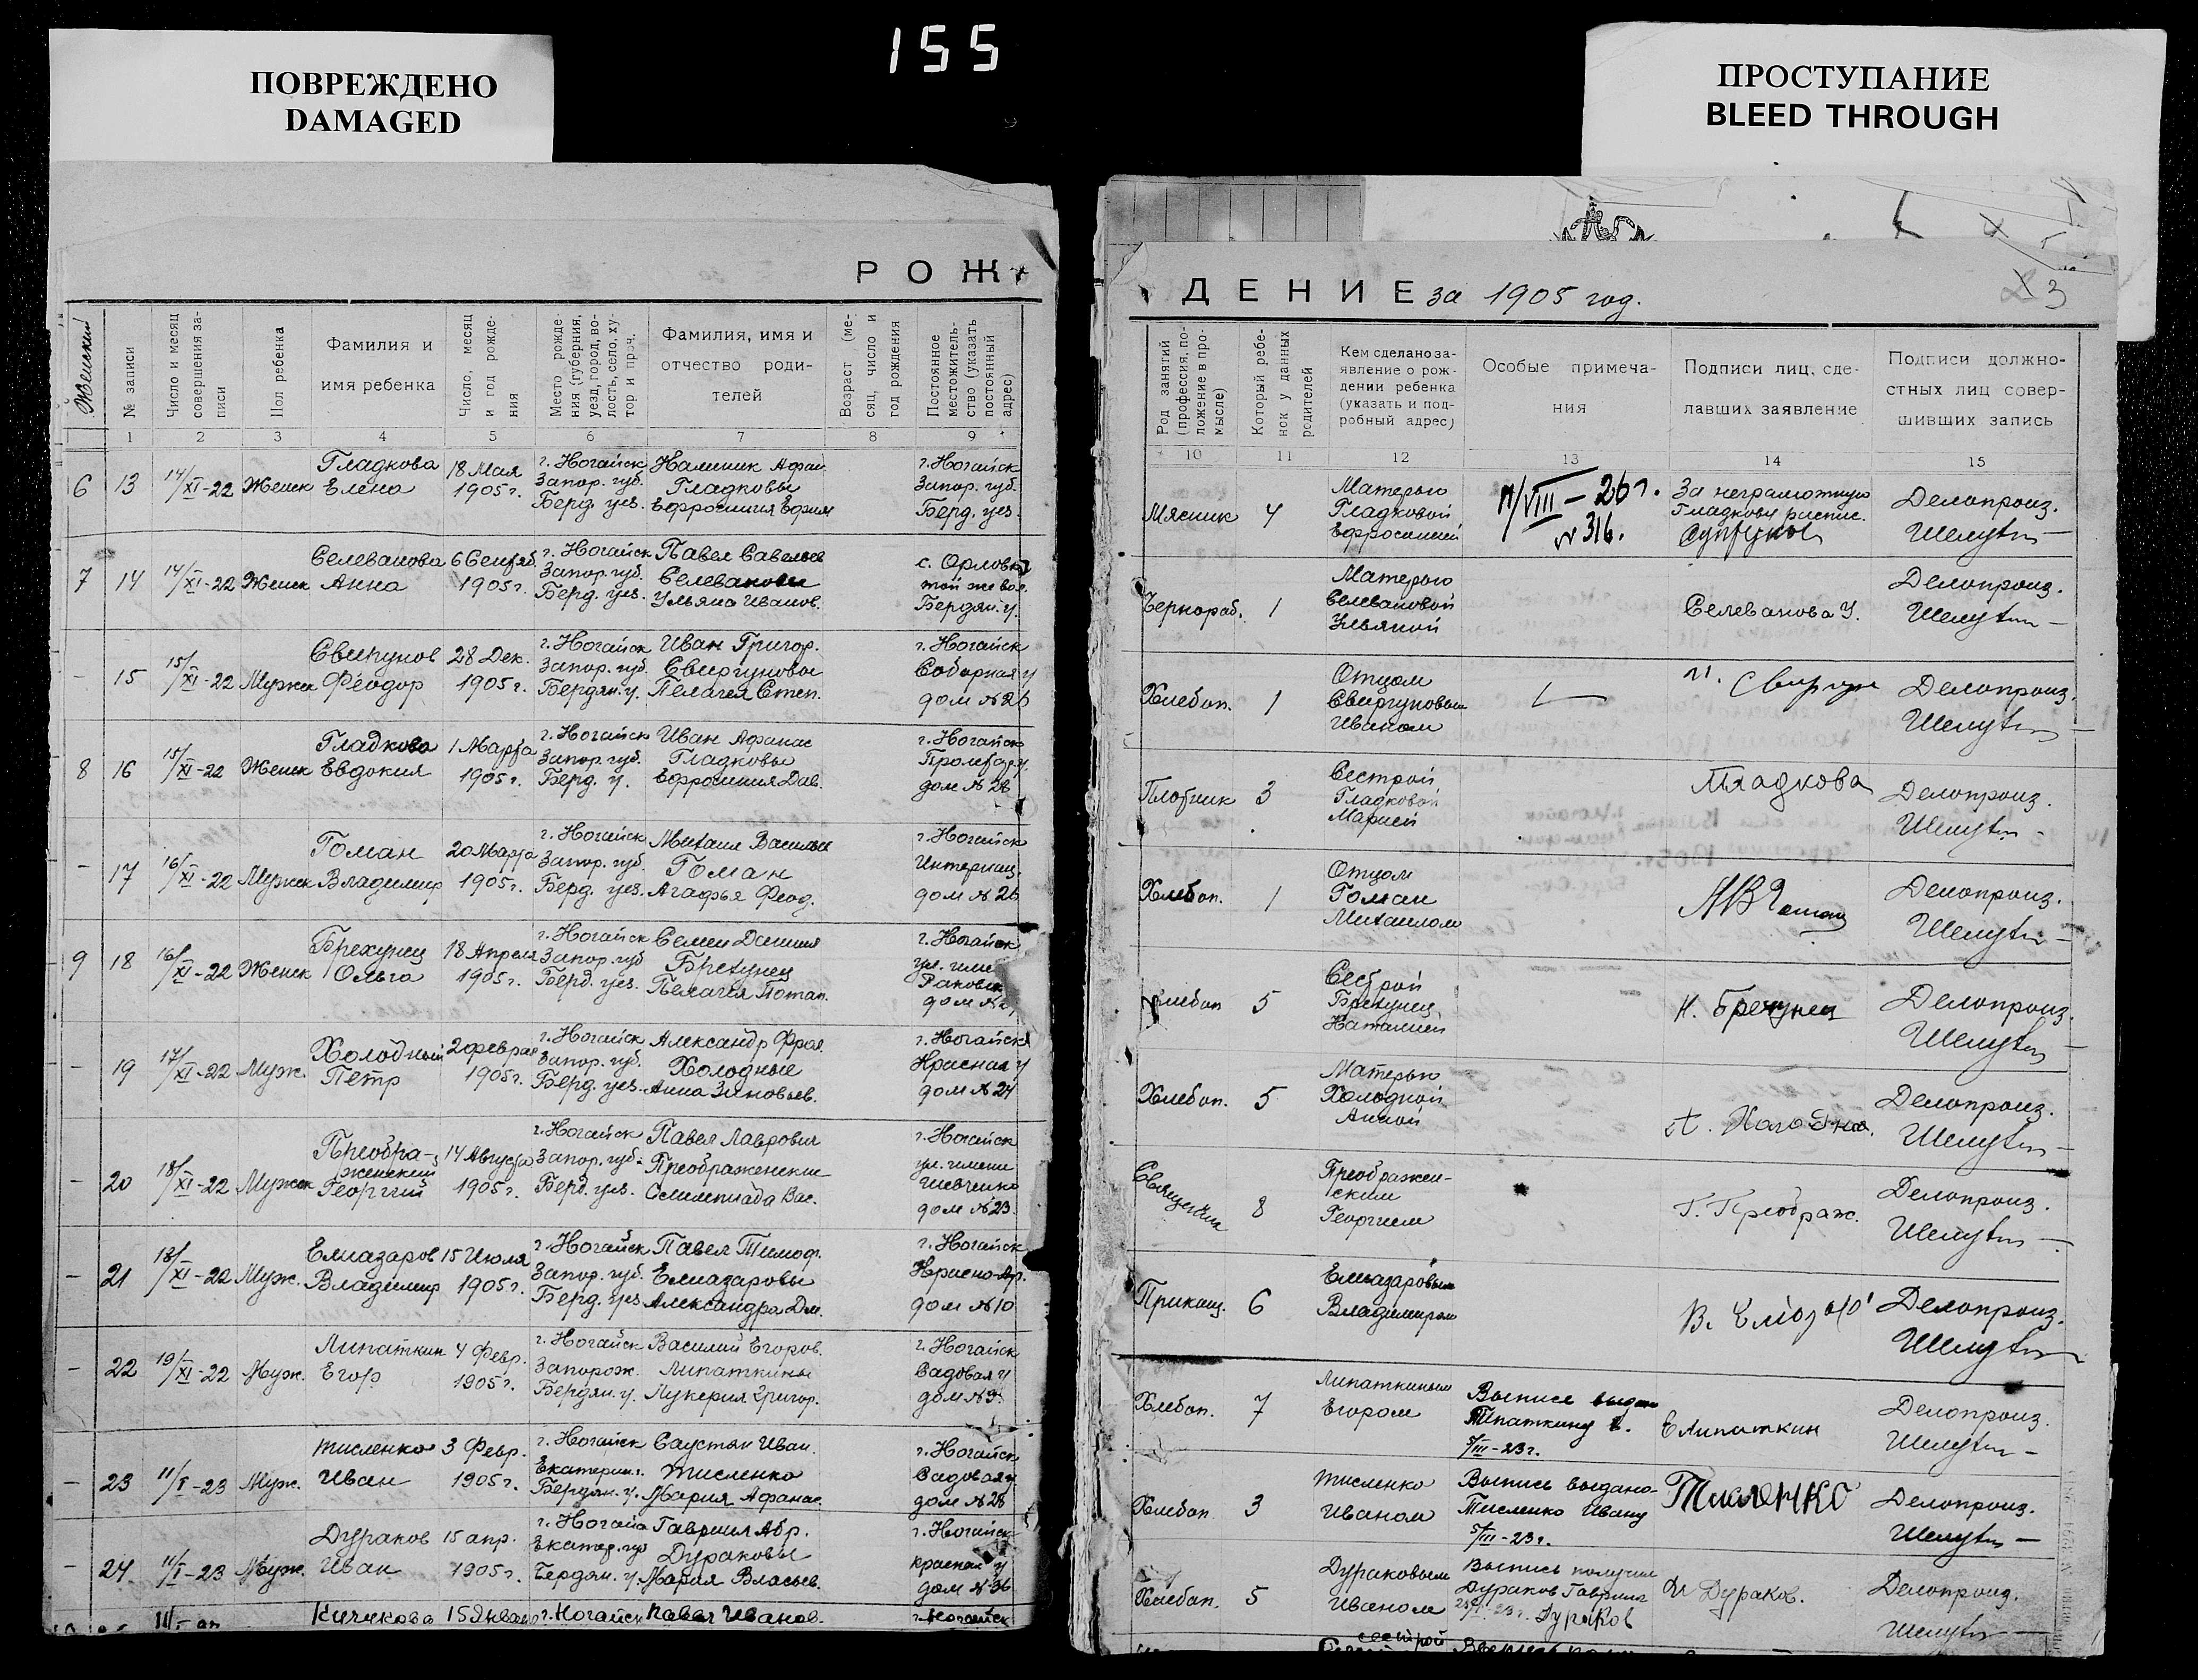 155
ПОВРЕЖДЕНО
DAMAGED
ПРОСТУПАНИЕ
BLEED THROUGH
РОЖ
ДЕНИЕ за 1905 год.
23
Женский
№ записи
Число и месяц совершения записи
Пол ребенка
Фамилия и
имя ребенка
Число, месяц
и год рожде-
ния
Место рожде-
ния (губерния,
уезд, город, во-
лость, село, ху-
тор и проч.
Фамилия, имя и
отчество роди-
телей
Возраст (ме-
сяц, число и
год рождения
Постоянное
местожитель-
ство (указать
постоянный
адрес)
1 2 3 4 5 6 7 8 9
Род занятий
(профессия, по-
ложение в про-
мысле)
Который ребе-
нок у данных
родителей
Кем сделано за-
явление о рож-
дении ребенка
(указать и под-
робный адрес)
Особые примеча-
ния
Подписи лиц, сде-
лавших заявление
Подписи должно-
стных лиц совер-
шивших запись
10 11 12 13 14 15
6 13 14/XI-22 Женск
Гладкова
Елена
18 Мая
1905 г.
г. Ногайск
Запор. губ.
Берд. уез.
Калиник Афан.
Гладковы
Ефросиния Ефим
г. Ногайск
Запор. губ.
Берд. уез.
Мясник 4
Матерью
Гладковой
Ефросинией
/VIII-26 г.
№ 316.
За неграмотную
Гладкову распис.
Делопроиз.
7 14 14/XI-22 Женск
Селеванова
Анна
6 Сентяб.
1905 г.
г. Ногайск
Запор. губ.
Берд. уез.
Павел Савельев
Селевановы
Ульяна Иванов.
с. Орловка
той же вол.
Бердян. у.
Чернораб. 1
Матерью
Селевановой
Ульяной
Селеванова У.
Делопроиз.
- 15 15/XI-22 Мужск
Свиргунов
Феодор
28 Дек.
1905 г.
г. Ногайск
Запор. губ.
Бердян. у.
Иван Григор.
Свиргуновы
Пелагея Степ.
г. Ногайск
Соборная у
дом № 26
Хлебоп. 1
Отцом
Свиргуновым
Иваном
Делопроиз.
8 16 15/XI-22 Женск
Гладкова
Евдокия
1 Марта
1905 г.
г. Ногайск
Запор. губ.
Берд. у.
Иван Афанас
Гладковы
Ефросиния Дав.
г. Ногайск
Пролетар у.
дом № 28
Плотник 3
Сестрой
Гладковой
Марией
Гладкова
Делопроиз.
- 17 16/XI-22 Мужск
Гоман
Владимир
20 Марта
1905 г.
г. Ногайск
Запор. губ.
Берд. уез.
Михаил Васильев
Гоман
Агафья Феод.
г. Ногайск
Интернац.
дом № 26
Хлебоп. 1
Отцом
Гоман
Михаилом
Делопроиз.
9 18 16/XI-22 Женск
Брехунец
Ольга
18 Апреля
1905 г.
г. Ногайск
Запор. губ
Берд. уез.
Семен Данил
Брехунец
Пелагея Потап.
г. Ногайск
ул. имени
Раковск
дом № 2
Хлебоп 5
Сестрой
Брехунец
Наталией
Н. Брехунец
Делопроиз.
- 19 17/XI-22 Муж.
Холодный
Петр
2 феврал
1905 г.
г. Ногайск
Запор. губ.
Берд. уез.
Александр Фрол.
Холодные
Анна Зиновьев.
г. Ногайск
Красная у
дом № 24
Хлебоп. 5
Матерью
Холодной
Анной
А. Холодная.
Делопроиз.
- 20 18/XI-22 Мужск
Преобра-
женский
Георгий
14 Августа
1905 г.
г. Ногайск
Запор. губ.
Берд. уез.
Павел Лаврович
Преображенские
Олимпиада Вас.
г. Ногайск
ул. имени
Шевченко
дом № 23.
Священник 8
Преображен-
ским
Георгием
Г. Преображ.
Делопроиз.
- 21 18/XI-22 Муж.
Елиазаров
Владимир
15 Июля
1905 г.
г. Ногайск
Запор. губ.
Берд. уез
Павел Тимоф.
Елиазаровы
Александра Дм.
г. Ногайск
Красно-Ар.
дом № 10
Приказч. 6
Елиазаровым
Владимиром
Делопроиз.
- 22 19/XI-22 Муж.
Липаткин
Егор
4 Февр.
1905 г.
г. Ногайск
Запорож.
Бердян. у.
Василий Егоров.
Липаткины
Лукерия Григор.
г. Ногайск
Садовая у
дом № 9.
Хлебоп. 7
Липаткиным
Егором
Выпись выдан
Липаткину Е.
5/III-23 г.
Е Липаткин
Делопроиз.
- 23 11/I-23 Муж.
Тисленко
Иван
3 Февр.
1905 г.
г. Ногайск
Екатерин.г.
Бердян. у.
Саустян Иван.
Тисленко
Мария Афанас.
г. Ногайск
Садовая у
дом № 28
Хлебоп. 3
Тисленко
Иваном
Выпись выдано
Тисленко Ивану
5/III-23 г.
Тисленко
Делопроиз.
- 24. 11/I-23 Муж.
Дураков
Иван
15 апр.
1905 г.
г. Ногайс
Екатер. губ
Бердян. у.
Гавриил Абр.
Дураковы
Мария Власьев.
г. Ногайск
Красная у
дом № 36
Хлебоп. 5
Дураковым
Иваном
Выпись получил
Дураков Гавриил
Дураков
Дураков.
Делопроиз.
Кичикова 15 Январ г. Ногайск Павел Иванов. г. Ногайск
сестрой